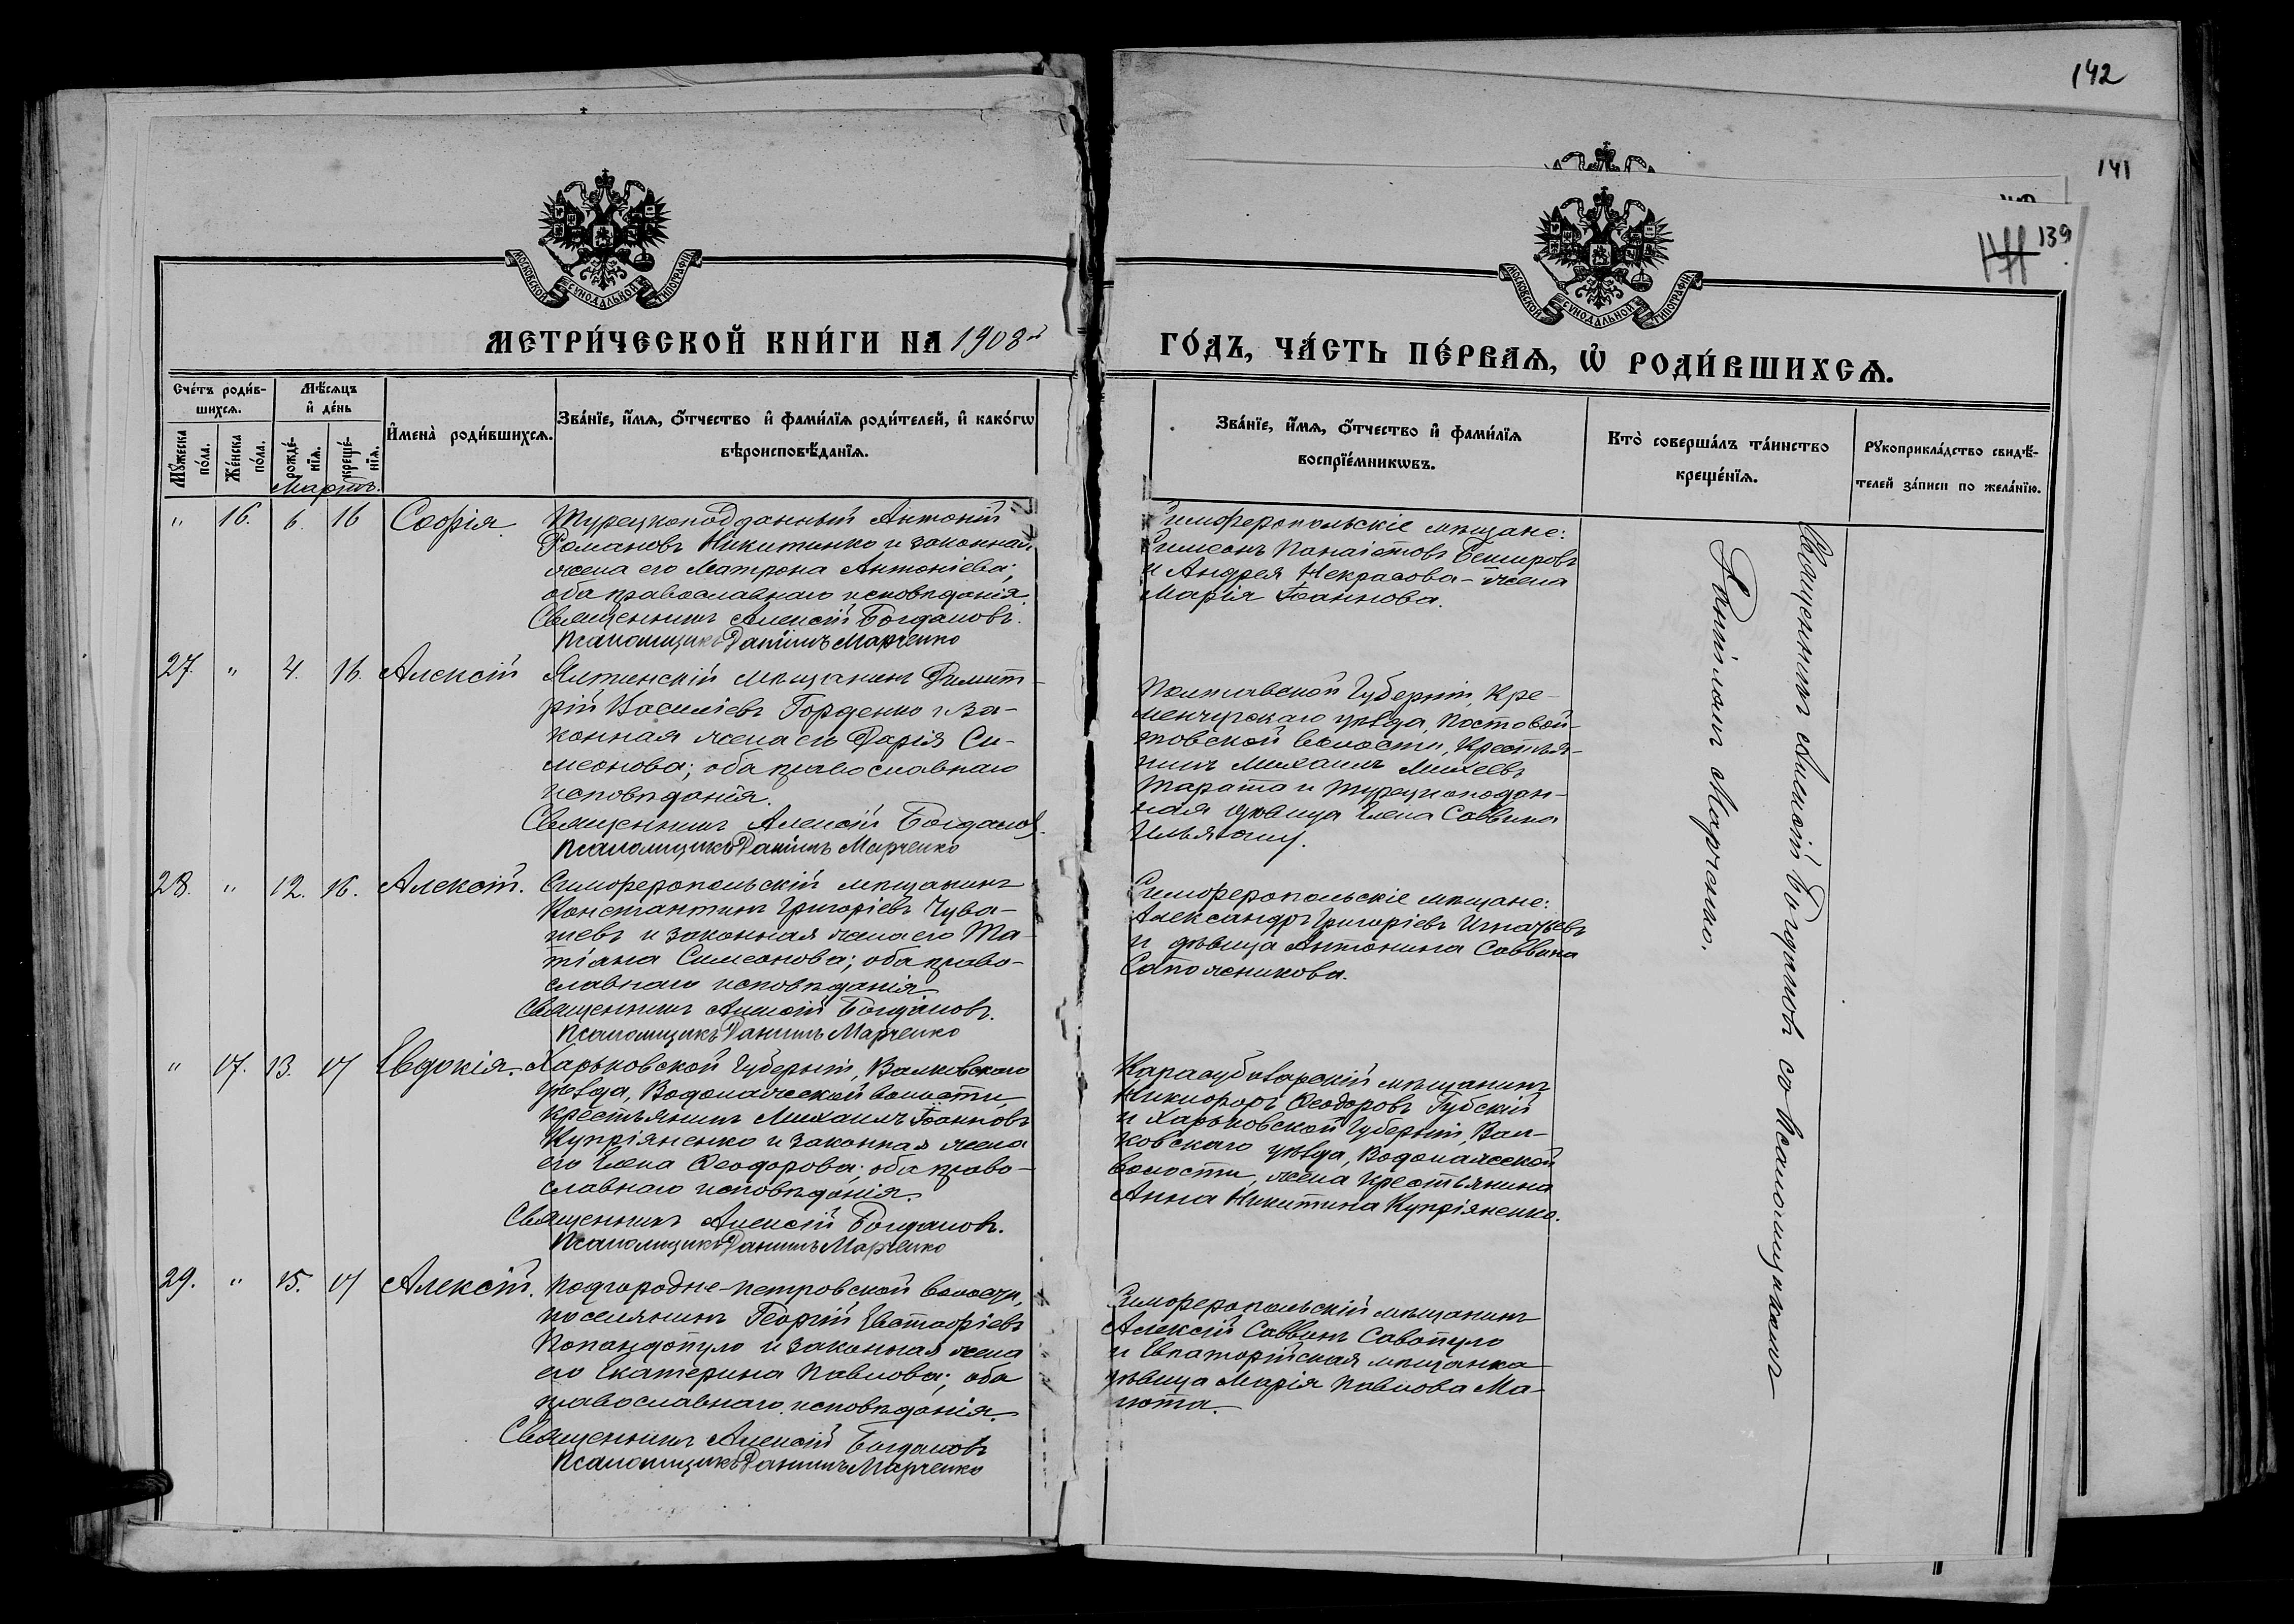 142
141
139
МОСКОВСКОЙ СѴНОДАЛЬНОЙ ТИПОГРАФІИ
МОСКОВСКОЙ СѴНОДАЛЬНОЙ ТИПОГРАФІИ
МЕТРИ́ЧЕСКОЙ КНИ́ГИ НА 1908й
ГО́ДЪ, ЧА́СТЬ ПЕ́РВАѦ, Ѡ РОДИ́ВШИХСѦ.
Сче́тъ роди́в-
шихсѧ.
Мꙋ́жеска по́ла.
Же́нска по́ла.
Мѣ́сѧцъ
и҆ де́нь
рожде́-
нїѧ.
креще́-
нїѧ.
И҆мена̀ роди́вшихсѧ.
Зва́нїе, и҆́мѧ, ѻ҆́тчество и҆ фами́лїѧ роди́телей, и҆ како́гѡ
вѣроисповѣ́данїѧ.
Зва́нїе, и҆́мѧ, ѻ҆́тчество и҆ фами́лїѧ
воспрїе́мникѡвъ.
Кто̀ соверша́лъ та́инство
креще́нїѧ.
Рꙋкоприкла́дство свидѣ́-
телей за́писи по жела́нїю.
Мартъ.
" 16. 6. 16 Софія.
Турецкоподданный Антоній
Романовъ Никитенко и законная
жена его Матрона Антоніева;
оба православнаго исповѣданія.
Священникъ Алексій Богдановъ.
Псаломщикъ Даніилъ Марченко
Симферопольскіе мѣщане:
Симеонъ Панаіотовъ
и Андрея Некрасова - жена
Марія Іоаннова.
27. " 4. 16. Алексій
Ялтинскій мѣщанинъ Димит-
рій Василіевъ Горденко и за-
конная жена его Дарія Си-
меонова; оба православнаго
исповѣданія.
Священникъ Алексій Богдановъ.
Псаломщикъ Даніилъ Марченко
Полтавской Губерніи, Кре-
менчугскаго уѣзда,
волости, крестья-
нинъ Михаилъ Михеевъ
Тарата и Турецкоподан-
ная дѣвица Елена Саввина
28. " 12. 16. Алексій.
Симферопольскій мѣщанинъ
Константинъ Григоріевъ Чува-
шевъ и законная жена его Та-
тіана Симеонова; оба право-
славнаго исповѣданія
Священникъ Алексій Богдановъ.
Псаломщикъ Даніилъ Марченко
Симферопольскіе мѣщане:
Александръ Григоріевъ Игнатьевъ
и дѣвица Антонина Саввина
Сапожникова.
" 17. 13. 17 Евдокія.
Харьковской Губерніи, Валковскаго
уѣзда, Водолажской волости,
крестьянинъ Михаилъ Іоанновъ
Купріяненко и законная жена
его Елена Ѳеодорова; оба право-
славнаго исповѣданія.
Священникъ Алексій Богдановъ.
Псаломщикъ Даніилъ Марченко
Карасубазарскій мѣщанинъ
Никифоръ Ѳеодоровъ Губскій
и Харьковской Губерніи, Вал-
ковскаго уѣзда, Водолажской
волости, жена крестьянина
Анна Никитина Купріяненко.
29. " 15. 17 Алексій.
Подгородне-Петровской волости,
поселянинъ Георгій Евстафіевъ
Попандопуло и законная жена
его Екатерина Павлова; оба
православнаго исповѣданія.
Священникъ Алексій Богдановъ
Псаломщикъ Даніилъ Марченко
Симферопольскій мѣщанинъ
Алексій Саввинъ Савопуло
и Евпаторійская мѣщанка
дѣвица Марія Павлова Ма-
Священникъ Алексій Богдановъ съ Псаломщикомъ
Даніиломъ Марченко.